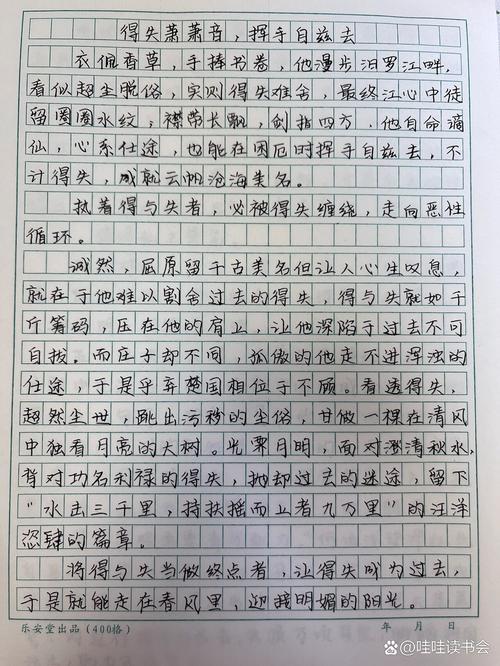 得失萧萧音，挥手自兹去
衣佩香草，手捧书卷，他漫步汨罗江畔，
看似超尘脱俗，实则得失难舍，最终江心中徒
留圈圈水纹，襟带长飘，剑指四方，他自命谪
仙，心系仕途，也能在困厄时挥手自兹去，不
计得失，成就云帆沧海美名。
执着得与失者，必被得失缠绕，走向恶性
循环。
诚然，屈原留千古美名但让人心生叹息，
就在于他难以割舍过去的得失，得与失就如千
斤筹码，压在他的肩上，让他深陷于过去不可
自拔。而庄子却不同，孤傲的他走不进浑浊的
仕途，于是乎弃楚国相位于不顾。看透得失，
超然尘世，跳出污秽的尘俗，甘做一棵在清风
中独看月亮的大树。光霁月明，面对澄清秋水，
背对功名利禄的得失，抛却过去的迷途，留下
“水击三千里，抟扶摇而上者九万里”的汪洋
恣肆的篇章。
将得与失当做终点者，让得失成为过去，
于是就能走在春风里，迎我明媚的阳光。
乐安堂出品（400格） 年 月 日
哇哇读书会